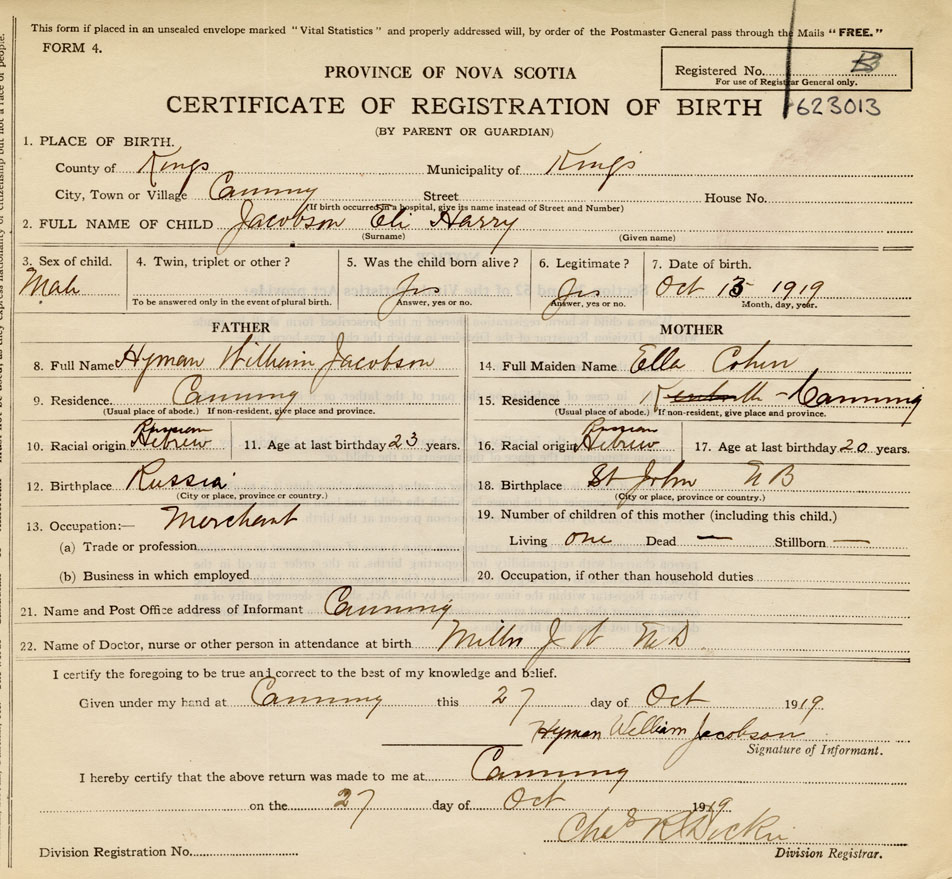 This form if placed in an unsealed envelope marked "Vital Statistics" and properly addressed will, by order of the Postmaster General pass through the Mails "FREE."
FORM 4.
Registered No.
For use of Registrar General only.
PROVINCE OF NOVA SCOTIA
CERTIFICATE OF REGISTRATION OF BIRTH 623013
(BY PARENT OR GUARDIAN)
1. PLACE OF BIRTH.
County of Kings Municipality of Kings
City, Town or Village Canning Street House No.
(If birth occurred in a hospital, give its name instead of Street and Number)
2. FULL NAME OF CHILD Jacobson Eli Harry
(Surname) (Given name)
3. Sex of child. 4. Twin, triplet or other? 5. Was the child born alive? 6. Legitimate? 7. Date of birth.
Male Yes Yes Oct 13 1919
To be answered only in the event of plural birth. Answer, yes or no. Answer, yes or no. Month, day, year.
FATHER MOTHER
8. Full Name Hyman William Jacobson 14. Full Maiden Name Ella Cohen
9. Residence. Canning 15. Residence Canning
(Usual place of abode.) If non-resident, give place and province. (Usual place of abode.) If non-resident, give place and province.
10. Racial origin Russian Hebrew 11. Age at last birthday 23 years. 16. Racial origin Russian Hebrew 17. Age at last birthday 20 years.
12. Birthplace Russia 18. Birthplace St John N B
(City or place, province or country.) (City or place, province or country.)
13. Occupation:— Merchant 19. Number of children of this mother (including this child.)
(a) Trade or profession Living one Dead — Stillborn —
(b) Business in which employed 20. Occupation, if other than household duties
21. Name and Post Office address of Informant Canning
22. Name of Doctor, nurse or other person in attendance at birth Miller J W M D.
I certify the foregoing to be true and correct to the best of my knowledge and belief.
Given under my hand at Canning this 27 day of Oct 1919
Hyman William Jacobson
Signature of Informant.
I hereby certify that the above return was made to me at Canning
on the 27 day of Oct 1919
Chas R Dickie
Division Registration No. Division Registrar.